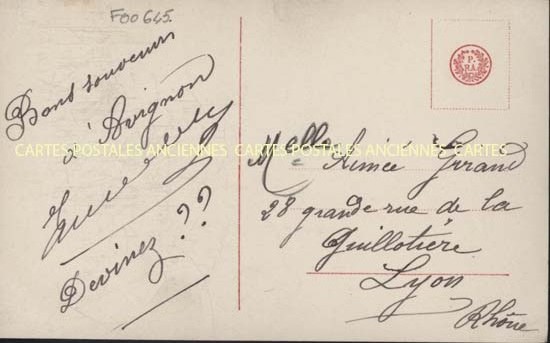 F00645
Bons souvenirs
d'Avignon
Devinez ??
Melle Aimée Girand
28 grande rue de la
Guillotière
Lyon
Rhône
CARTES POSTALES ANCIENNES CARTES POSTALES ANCIENNES CARTES POSTALES ANCIENNES